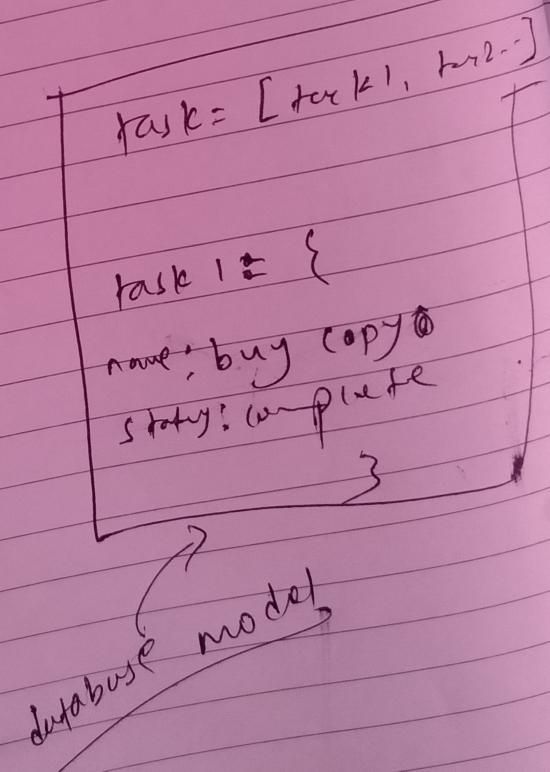 task = [task1, task2..]
task 1 = {
name: buy copy
status: complete
}
database model